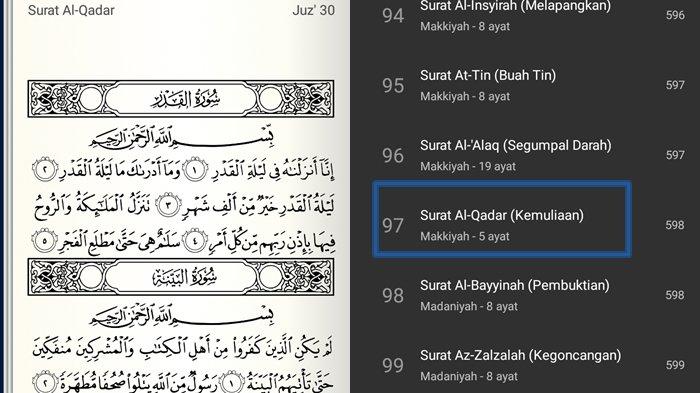 Surat Al-Qadar
Juz' 30
سُورَةُ القَدْرِ
بِسْمِ اللَّهِ الرَّحْمَٰنِ الرَّحِيمِ
إِنَّا أَنزَلْنَاهُ فِي لَيْلَةِ الْقَدْرِ ١ وَمَا أَدْرَاكَ مَا لَيْلَةُ الْقَدْرِ ٢
لَيْلَةُ الْقَدْرِ خَيْرٌ مِّنْ أَلْفِ شَهْرٍ ٣ تَنَزَّلُ الْمَلَائِكَةُ وَالرُّوحُ
فِيهَا بِإِذْنِ رَبِّهِم مِّن كُلِّ أَمْرٍ ٤ سَلَامٌ هِيَ حَتَّىٰ مَطْلَعِ الْفَجْرِ ٥
سُورَةُ البَيِّنَةِ
بِسْمِ اللَّهِ الرَّحْمَٰنِ الرَّحِيمِ
لَمْ يَكُنِ الَّذِينَ كَفَرُوا مِنْ أَهْلِ الْكِتَابِ وَالْمُشْرِكِينَ مُنفَكِّينَ
حَتَّىٰ تَأْتِيَهُمُ الْبَيِّنَةُ ١ رَسُولٌ مِّنَ اللَّهِ يَتْلُو صُحُفًا مُّطَهَّرَةً ٢
94 Surat Al-Insyirah (Melapangkan) 596
Makkiyah - 8 ayat
95 Surat At-Tin (Buah Tin) 597
Makkiyah - 8 ayat
96 Surat Al-'Alaq (Segumpal Darah) 597
Makkiyah - 19 ayat
97 Surat Al-Qadar (Kemuliaan) 598
Makkiyah - 5 ayat
98 Surat Al-Bayyinah (Pembuktian) 598
Madaniyah - 8 ayat
99 Surat Az-Zalzalah (Kegoncangan) 599
Madaniyah - 8 ayat